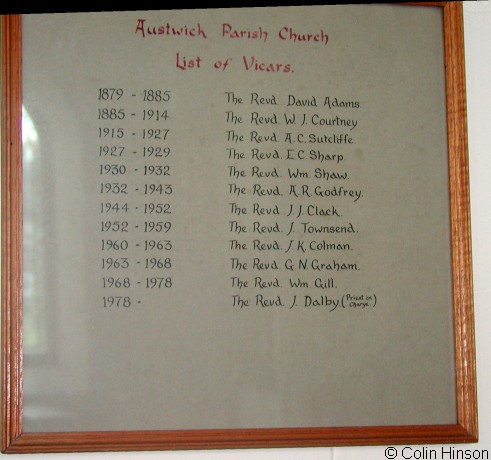 Austwick Parish Church
List of Vicars.
1879 - 1885 The Revd. David Adams.
1885 - 1914 The Revd. W. J. Courtney
1915 - 1927 The Revd. A.C. Sutcliffe.
1927 - 1929 The Revd. E.C. Sharp.
1930 - 1932 The Revd. Wm Shaw.
1932 - 1943 The Revd. A.R. Godfrey.
1944 - 1952 The Revd. J.J. Clack.
1952 - 1959 The Revd. J. Townsend.
1960 - 1963 The Revd. J.K. Colman.
1963 - 1968 The Revd. G.N. Graham.
1968 - 1978 The Revd. Wm Gill.
1978 - The Revd. J. Dalby. (Priest in Charge)
© Colin Hinson